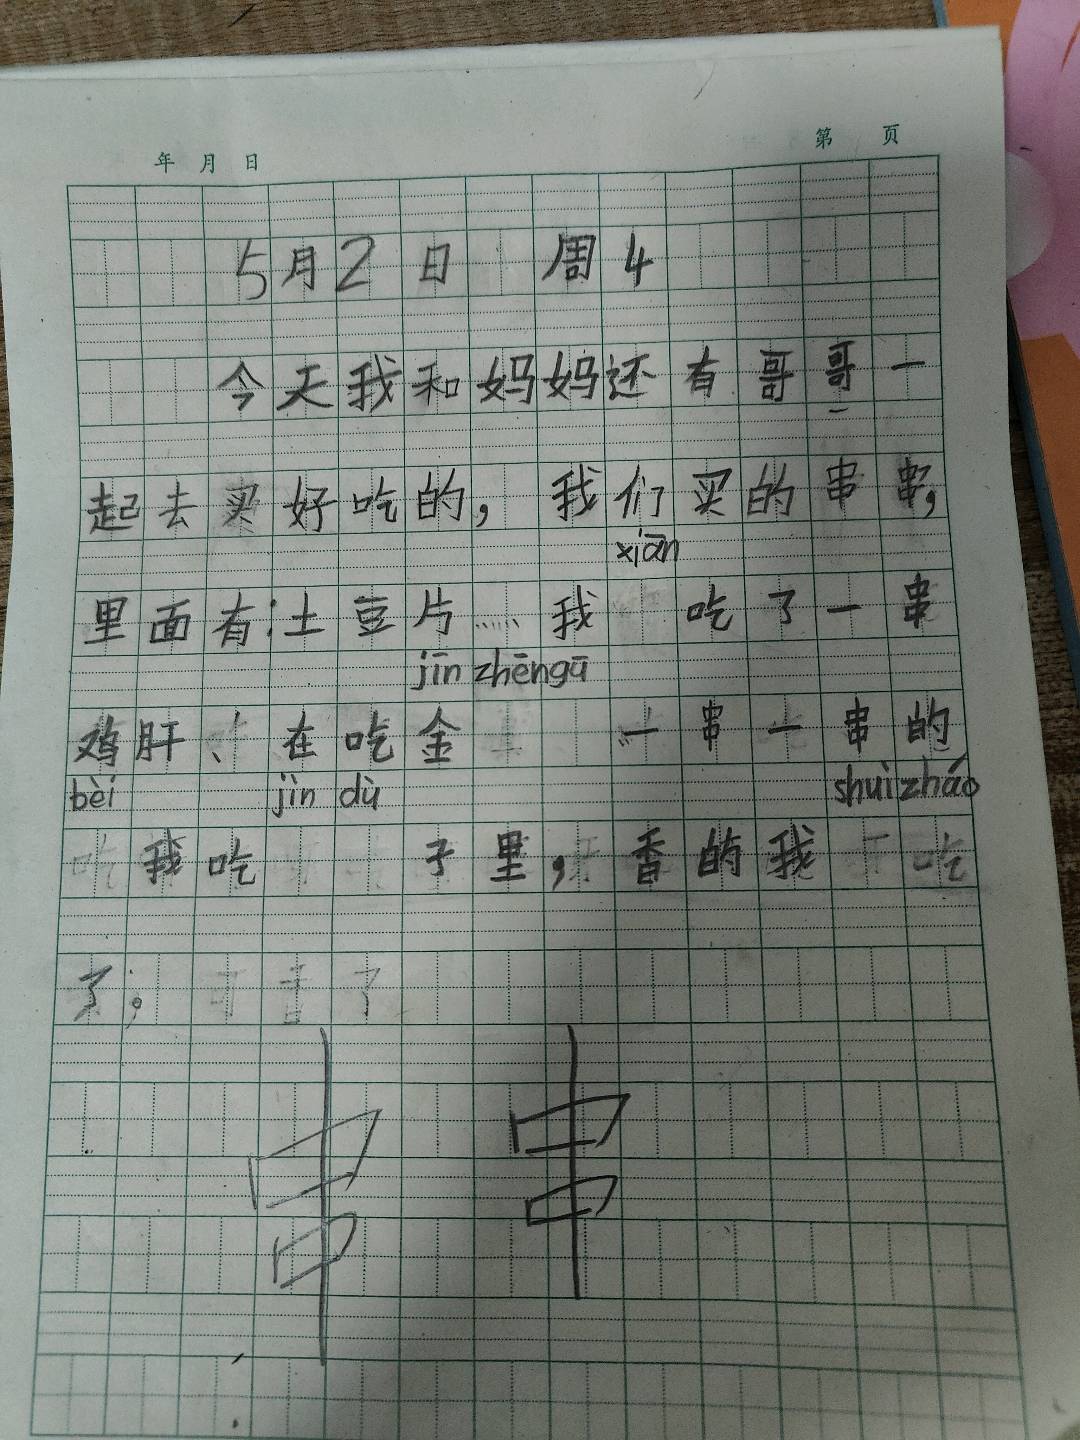 年 月 日 第 页
5月2日 周4
今天我和妈妈还有哥哥一
起去买好吃的，我们买的串串，
xiān
里面有：土豆片……我 吃了一串
jīn zhēngū
鸡肝、在吃金 一串一串的
bèi jìn dù shuì zháo
我吃 子里，香的我
了；
串 串